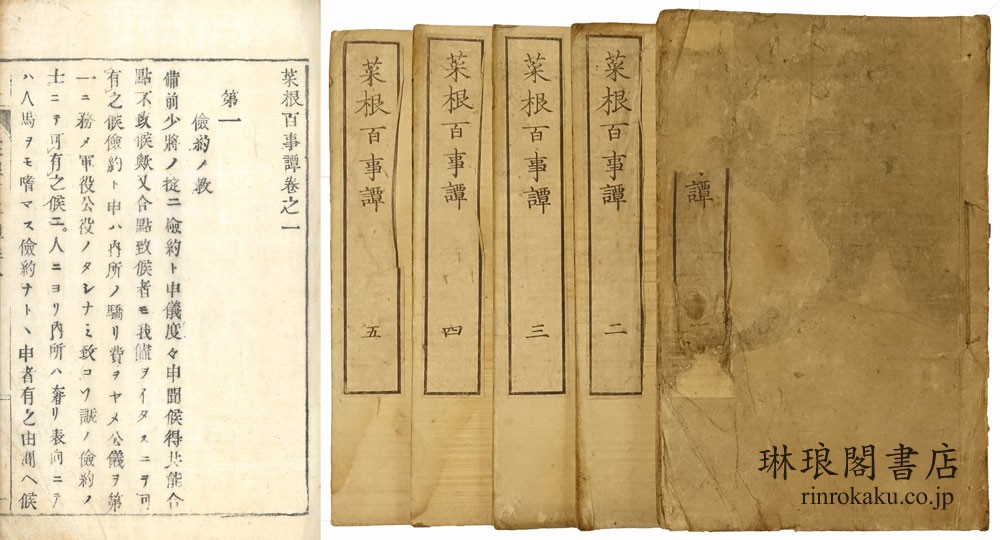 菜根百事譚卷之一
第一
儉約ノ教
備前少將ノ掟ニ儉約ト申儀度々申聞候得共能合
點不致候歟又合點致候者モ我儘ヲイタスニテ可
有之候儉約ト申ハ内所ノ驕リ費ヲヤメ公儀ヲ第
一ニ務メ軍役公役ノタシナミ致コソ誠ノ儉約ノ
士ニテ可有之候ニ。人ニヨリ内所ハ奢リ表向ニテ
ハ人馬ヲモ嗜マス儉約ナト丶申者有之由聞ヘ候
譚
菜根百事譚
二
菜根百事譚
三
菜根百事譚
四
菜根百事譚
五
琳琅閣書店
rinrokaku.co.jp